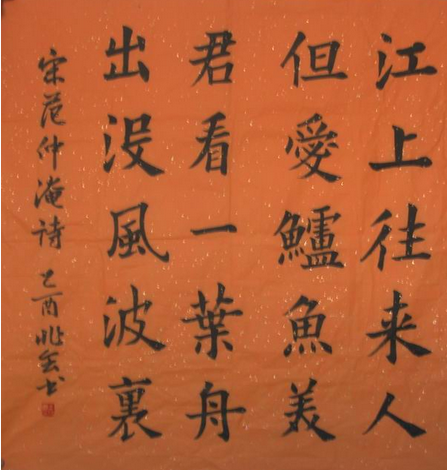 江上往来人
但愛鱸魚美
君看一葉舟
出没風波裏
宋范仲淹詩 乙酉 書